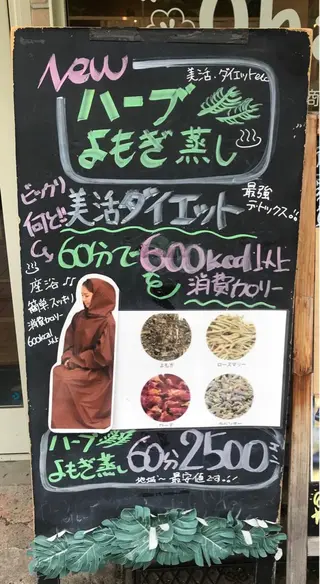 New
美活・ダイエットetc
ハーブ
よもぎ蒸し
最強
デトックス
美活ダイエット
60分で600kcal以上
を消費カロリー
座浴♪♪
簡単スッキリ
消費カロリー
600kcal
以上
よもぎ
ローズマリー
ローズ
ラベンダー
ハーブ
よもぎ蒸し
60分2500
地域一最安値です